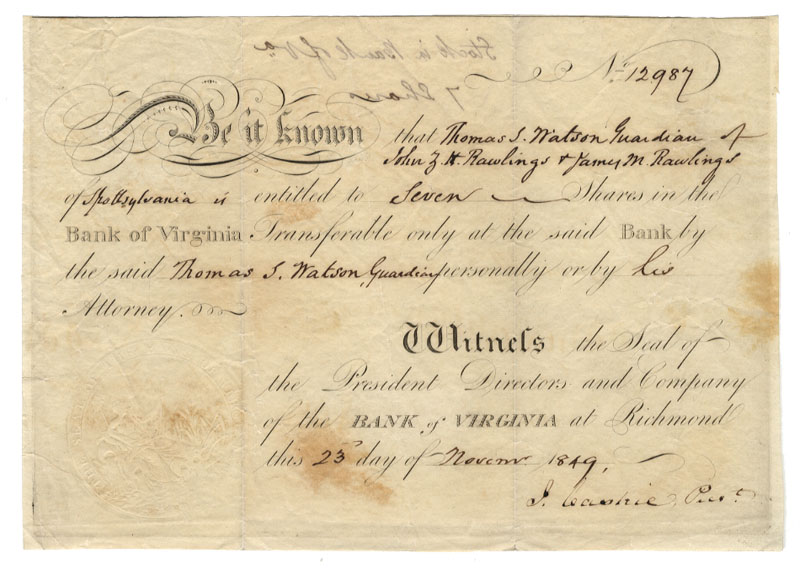 No. 12987
Be it known that Thomas S. Watson Guardian of
John Z. H. Rawlings & James M. Rawlings
of Spottsylvania is entitled to Seven Shares in the
Bank of Virginia Transferable only at the said Bank by
the said Thomas S. Watson Guardian personally or by his
Attorney.
Witness the Seal of
the President Directors and Company
of the BANK of VIRGINIA at Richmond
this 23d day of Novemr 1849,
J. Caskie Prest
Stock in Bank of Va
7 Shares